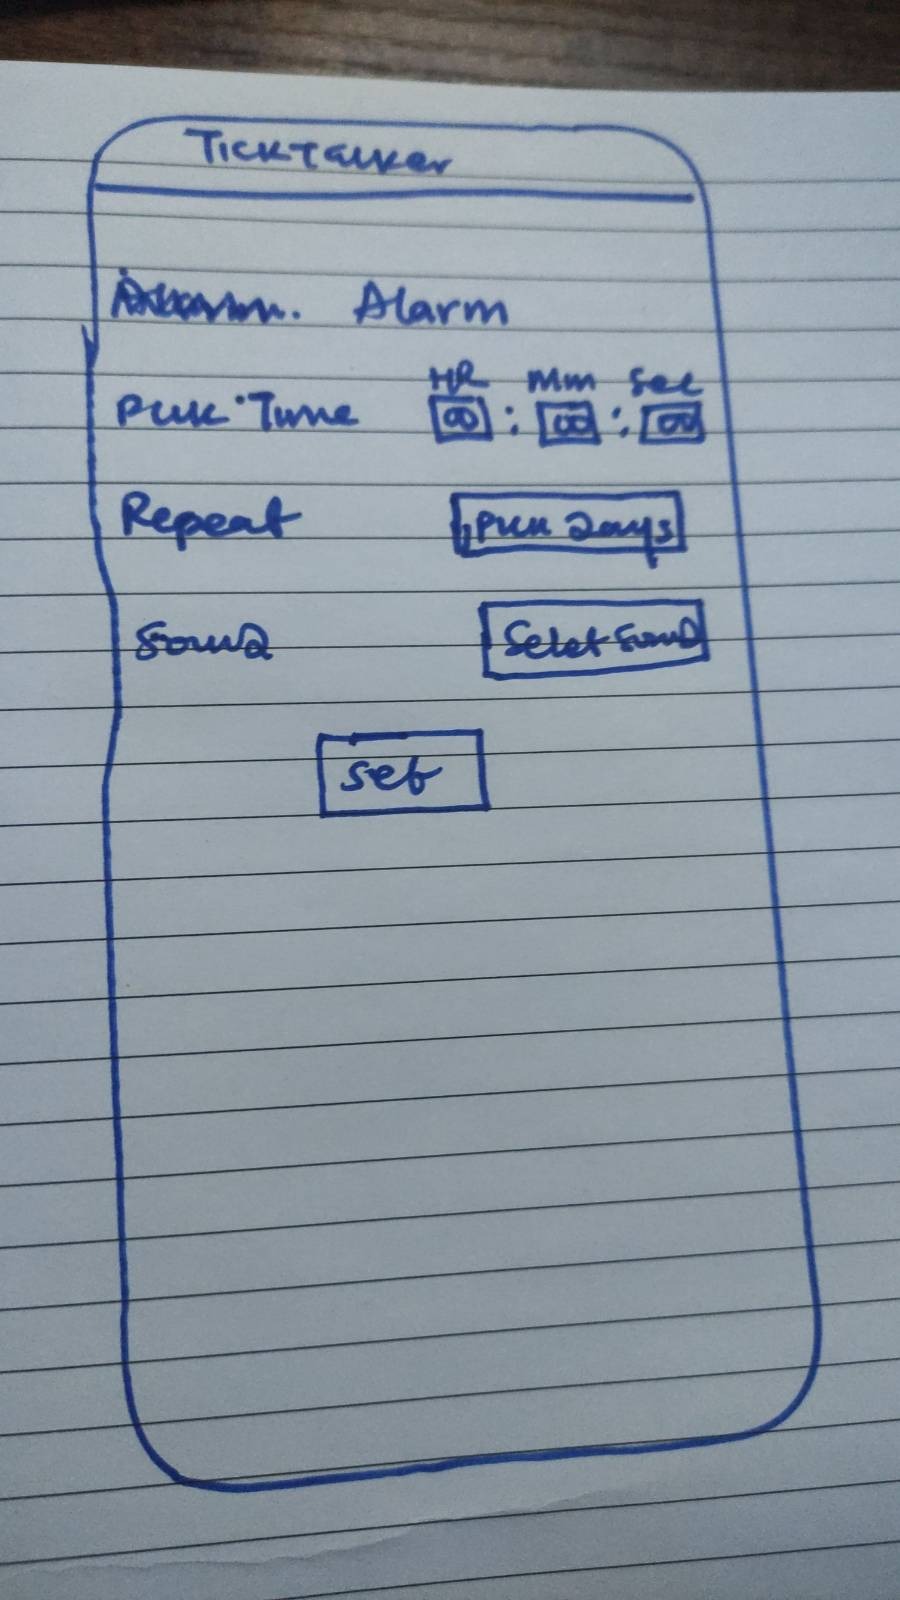 Ticktalker
Alarm
Pick Time
HR Min Sec
00 : 00 : 00
Repeat Pick Days
Sound Select Sound
Set